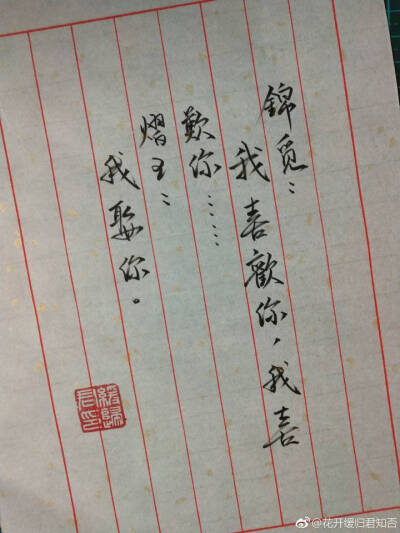 錦覓：
我喜歡你，我喜
歡你……
熠王：
我娶你。
緩歸
長印
@花开缓归君知否